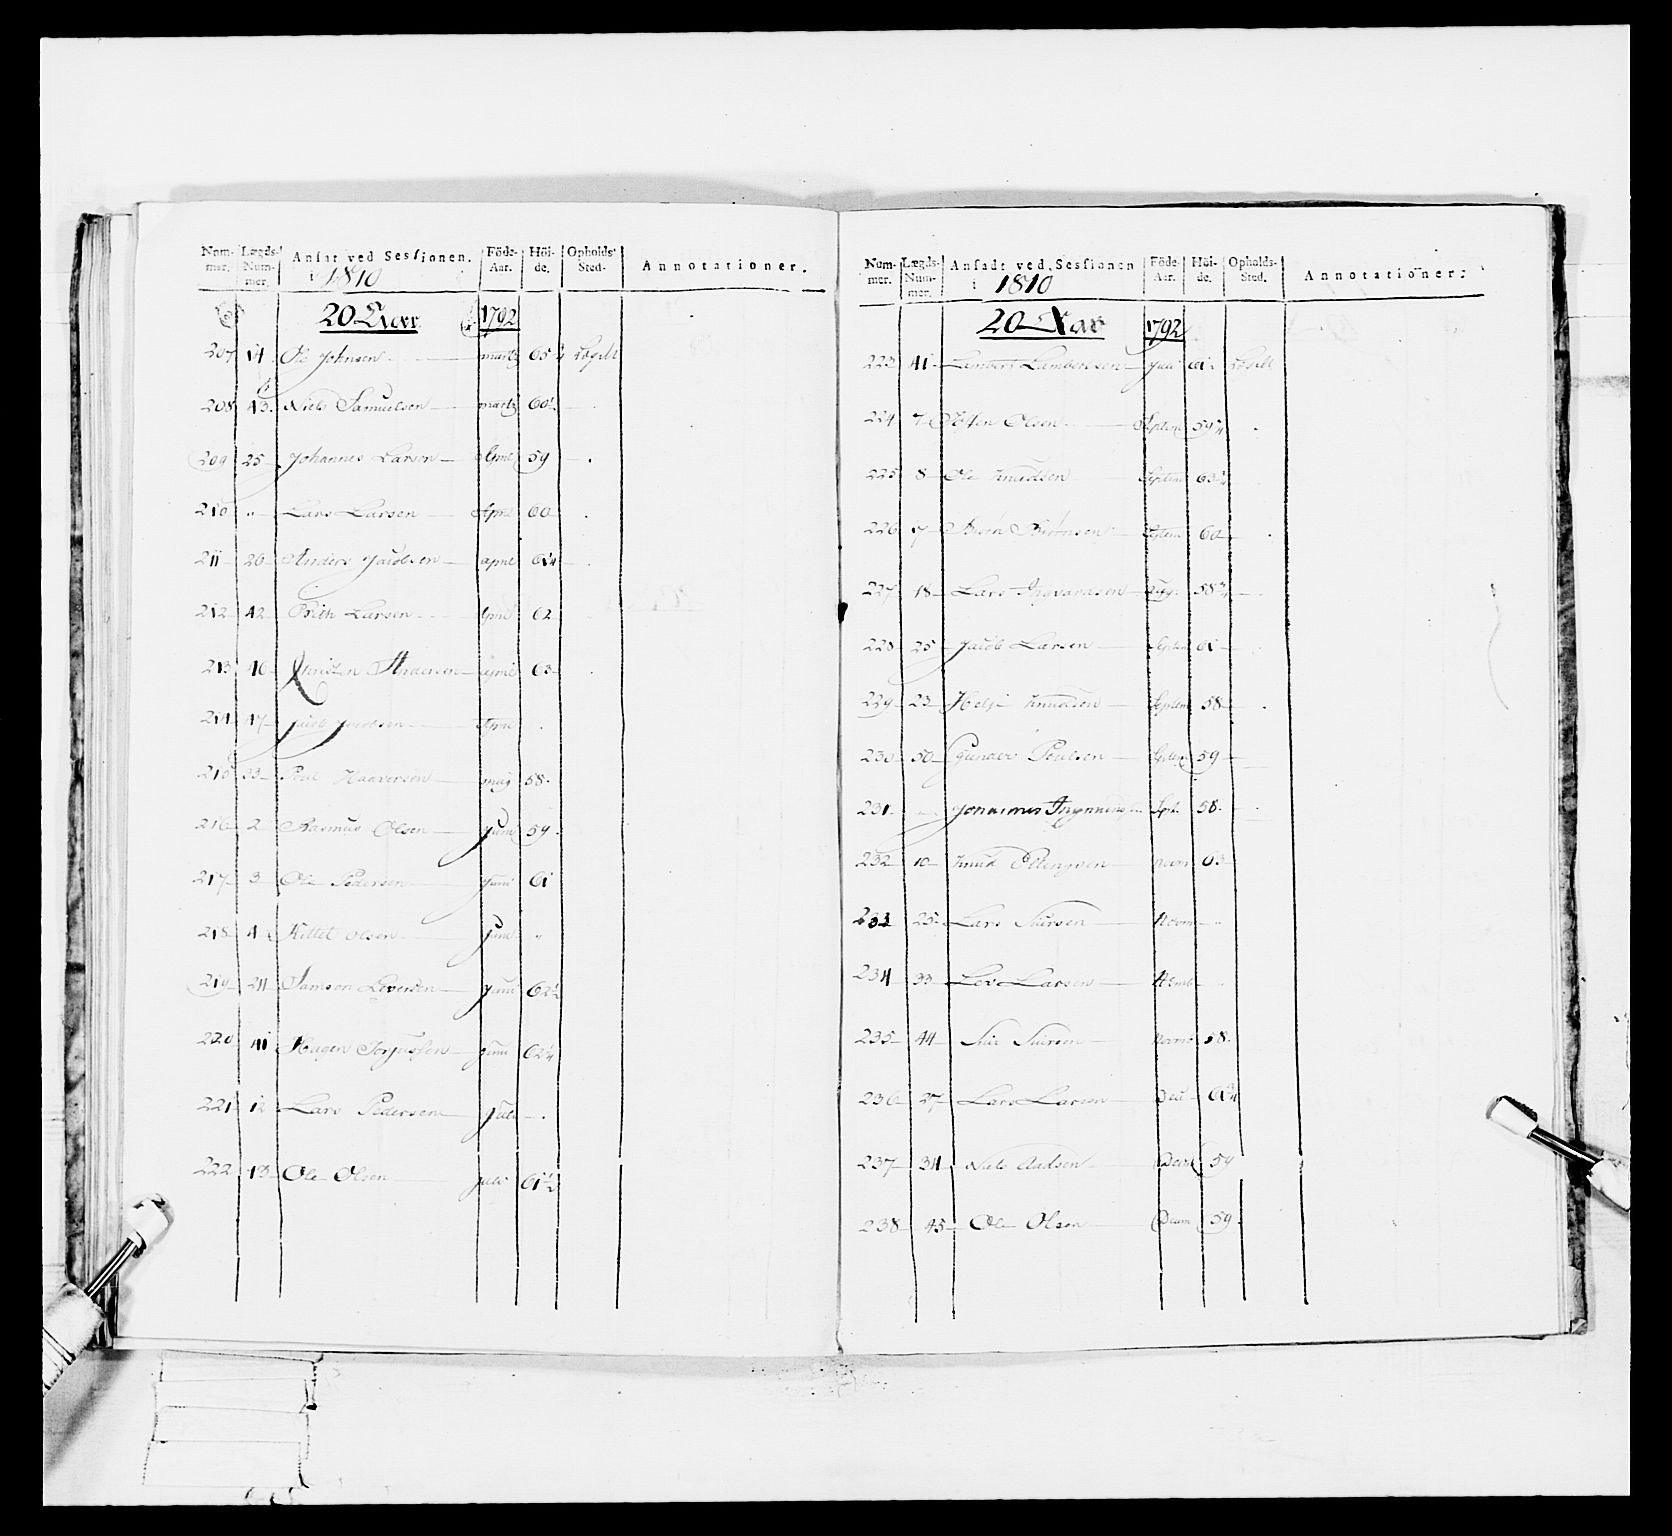 Num-mer. Lægds-Num-mer. Ansat ved Sessionen. i 1810 Föde-Aar. Höi-de. Opholds-Sted. Annotationer.
20 Aar 1792
207 14 Ole Johnsen martz 65 Lægdt
208 43 Niels Samuelsen martz 60½
209 25 Johannes Larsen April 59
210 " Lars Larsen April 60
211 26 Anders Jacobsen april 61¼
212 42 Larsen April 62
213 46 Christen Andersen april 63
214 47 Jacob Jacobsen April
215 33 Poul Haaversen maij 58
216 2 Rasmus Olsen Juni 59
217 3 Ole Pedersen Juni 61
218 4 Kittel Olsen Juni "
219 24 Samson Leversen Juni 62½
220 41 Hagen Torjussen Juni 62¼
221 12 Lars Pedersen Juli
222 13 Ole Olsen Juli 61½
Num-mer. Lægds-Num-mer. Ansadt ved Sessionen i 1810 Föde-Aar. Höi-de. Opholds-Sted. Annotationer.
20 Aar 1792
223 41 Lambert Lambertsen Juli 61 Lægdt
224 7 Olsen Septem 59¼
225 8 Ole Knudsen Septem 63¼
226 7 Biørn Biørnsen Septem 60
227 18 Lars Ingvardsen Aug. 58¾
228 25 Jacob Larsen Septem 61
229 23 Helje Knudsen Septem 58
230 50 Gunder Poulsen Septem 59
231 " Johannes Sept. 58
232 10 Knud Ellingsen Novm 63
233 25 Lars Siursen Novm "
234 33 Lev Larsen "
235 44 Siur Siursen Novm 58
236 27 Lars Larsen 61¼
237 34 Niels Aadsen Decm 59
238 45 Ole Olsen Decem 59